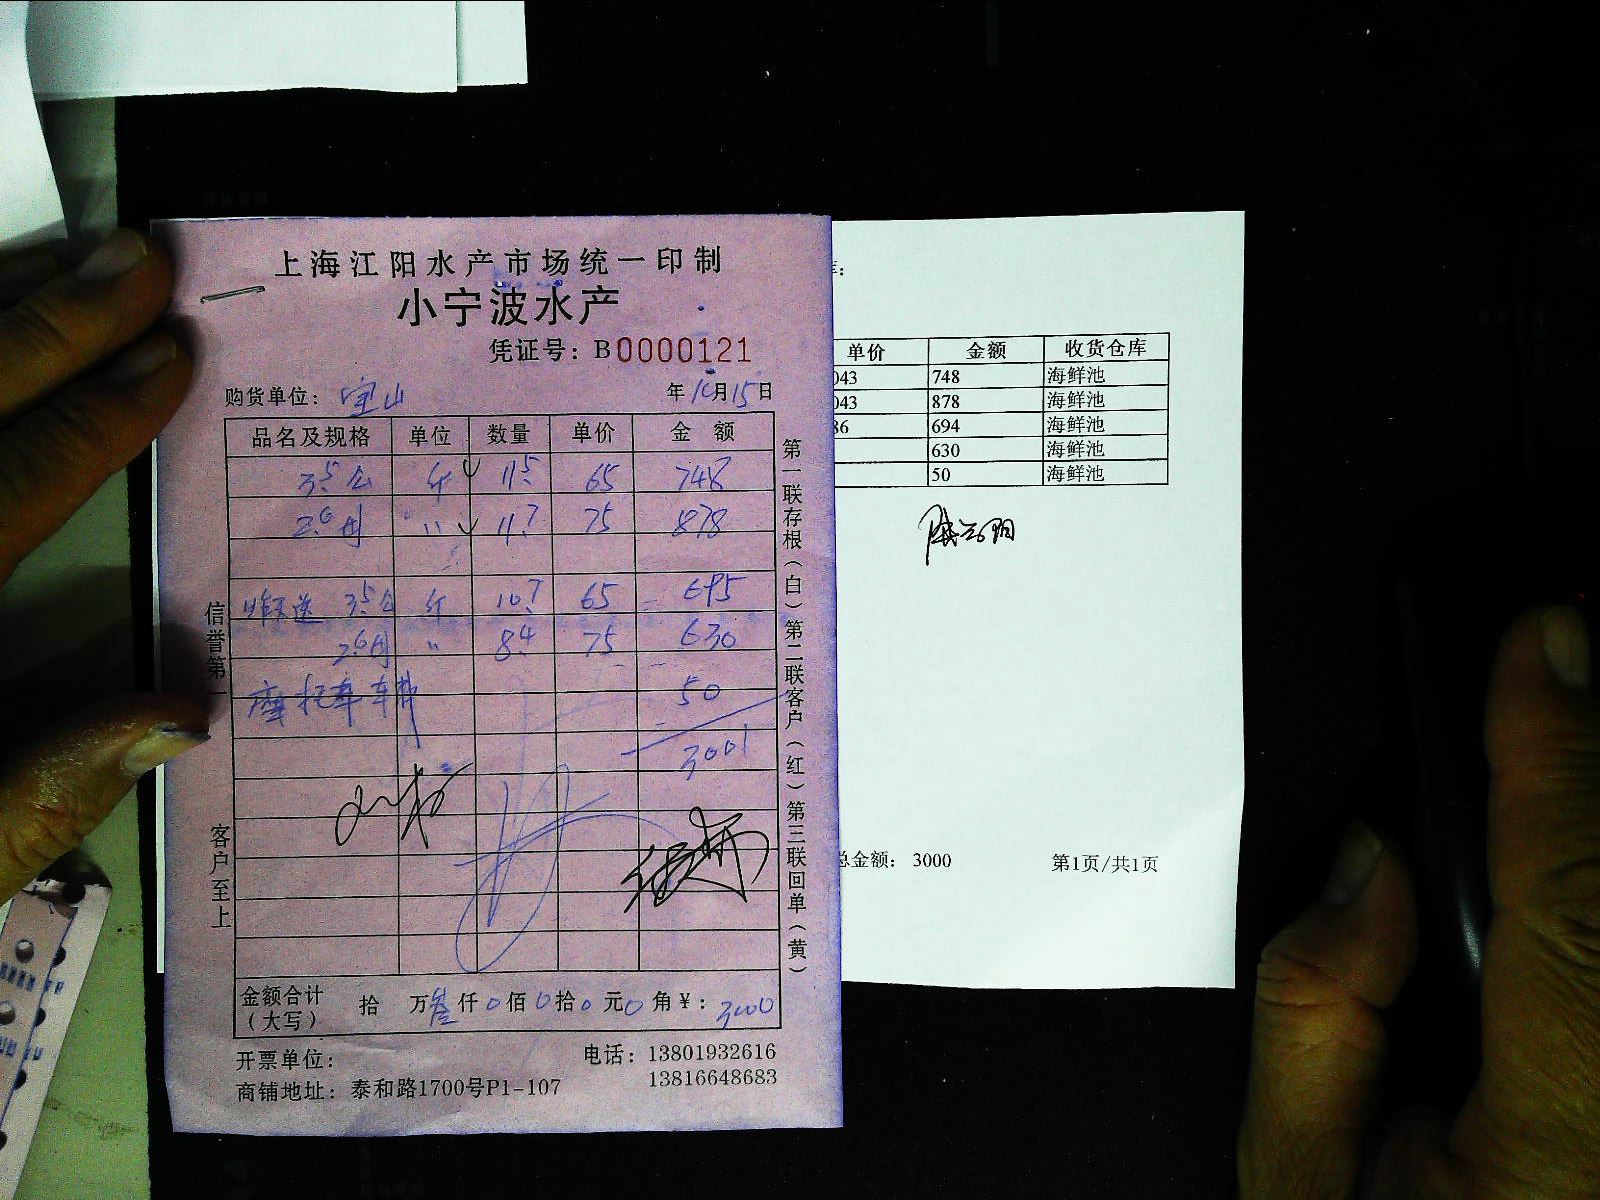 上海江阳水产市场统一印制
小宁波水产
凭证号：B0000121
购货单位：宝山 年10月15日
品名及规格 单位 数量 单价 金额
3.5公 斤 11.5 65 748
2.6母 〃 11.7 75 878
3.5公 斤 10.7 65 695
2.6母 〃 8.4 75 630
摩托车车费 50
3001
金额合计（大写） 拾 万叁仟0佰0拾0元0角￥：3000
开票单位：
电话：13801932616
13816648683
商铺地址：泰和路1700号P1-107
信誉第一
客户至上
第一联存根（白）第二联客户（红）第三联回单（黄）
单价 金额 收货仓库
043 748 海鲜池
043 878 海鲜池
86 694 海鲜池
630 海鲜池
50 海鲜池
总金额：3000 第1页/共1页